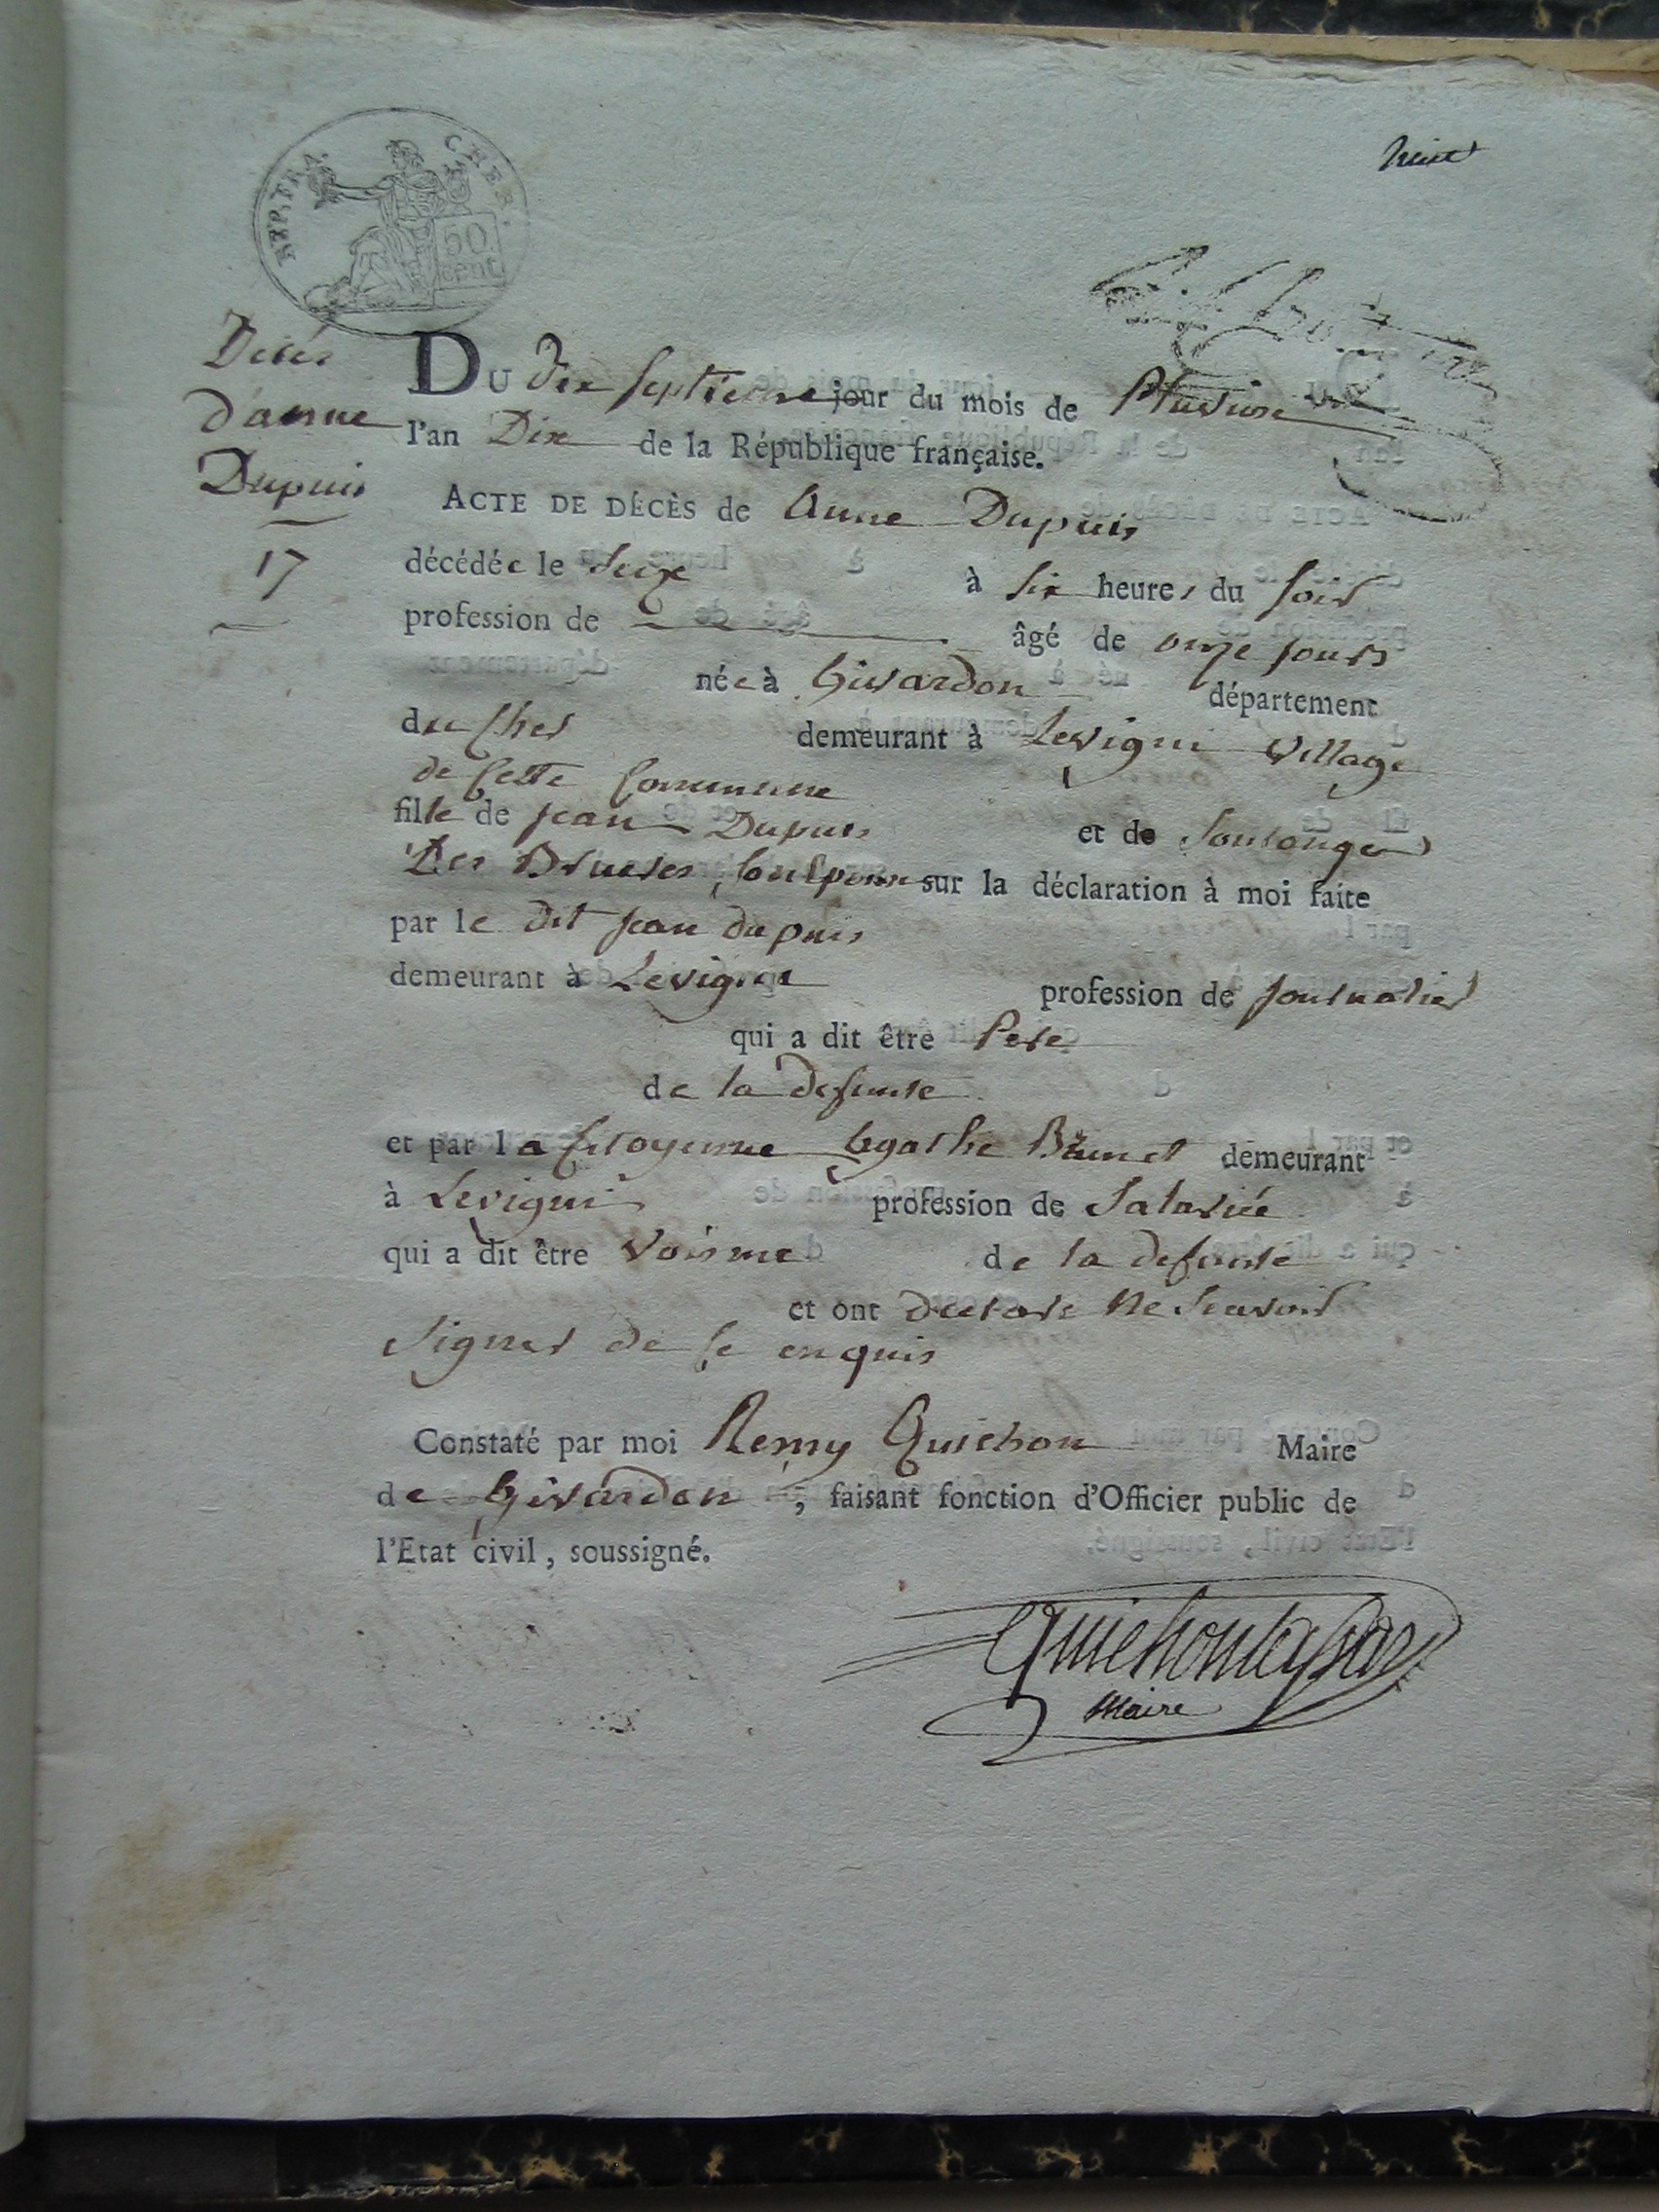 huit
REP. FRA. CHES.
50
cent.
Décés
d'anne
Dupuis
17
DU dix septieme jour du mois de Pluviose
l'an Dix de la République française.
ACTE DE DÉCÈS de Anne Dupuis
décédée le seize à six heures du soir
profession de âgé de onze jours
née à Givardon département
du Cher demeurant à Levigni village
de cette commune
fille de jean Dupuis et de Soulange
Des Brueres, sur la déclaration à moi faite
par le dit jean dupuis
demeurant à Levigni profession de journalier
qui a dit être Pere
de la defunte
et par la Citoyenne Agathe Brunet demeurant
à Levigni profession de Salariée
qui a dit être voisine de la defunte
et ont declaré ne scavoir
signer de ce enquis
Constaté par moi Remy Quichon Maire
de Givardon, faisant fonction d'Officier public de
l'Etat civil, soussigné.
Maire